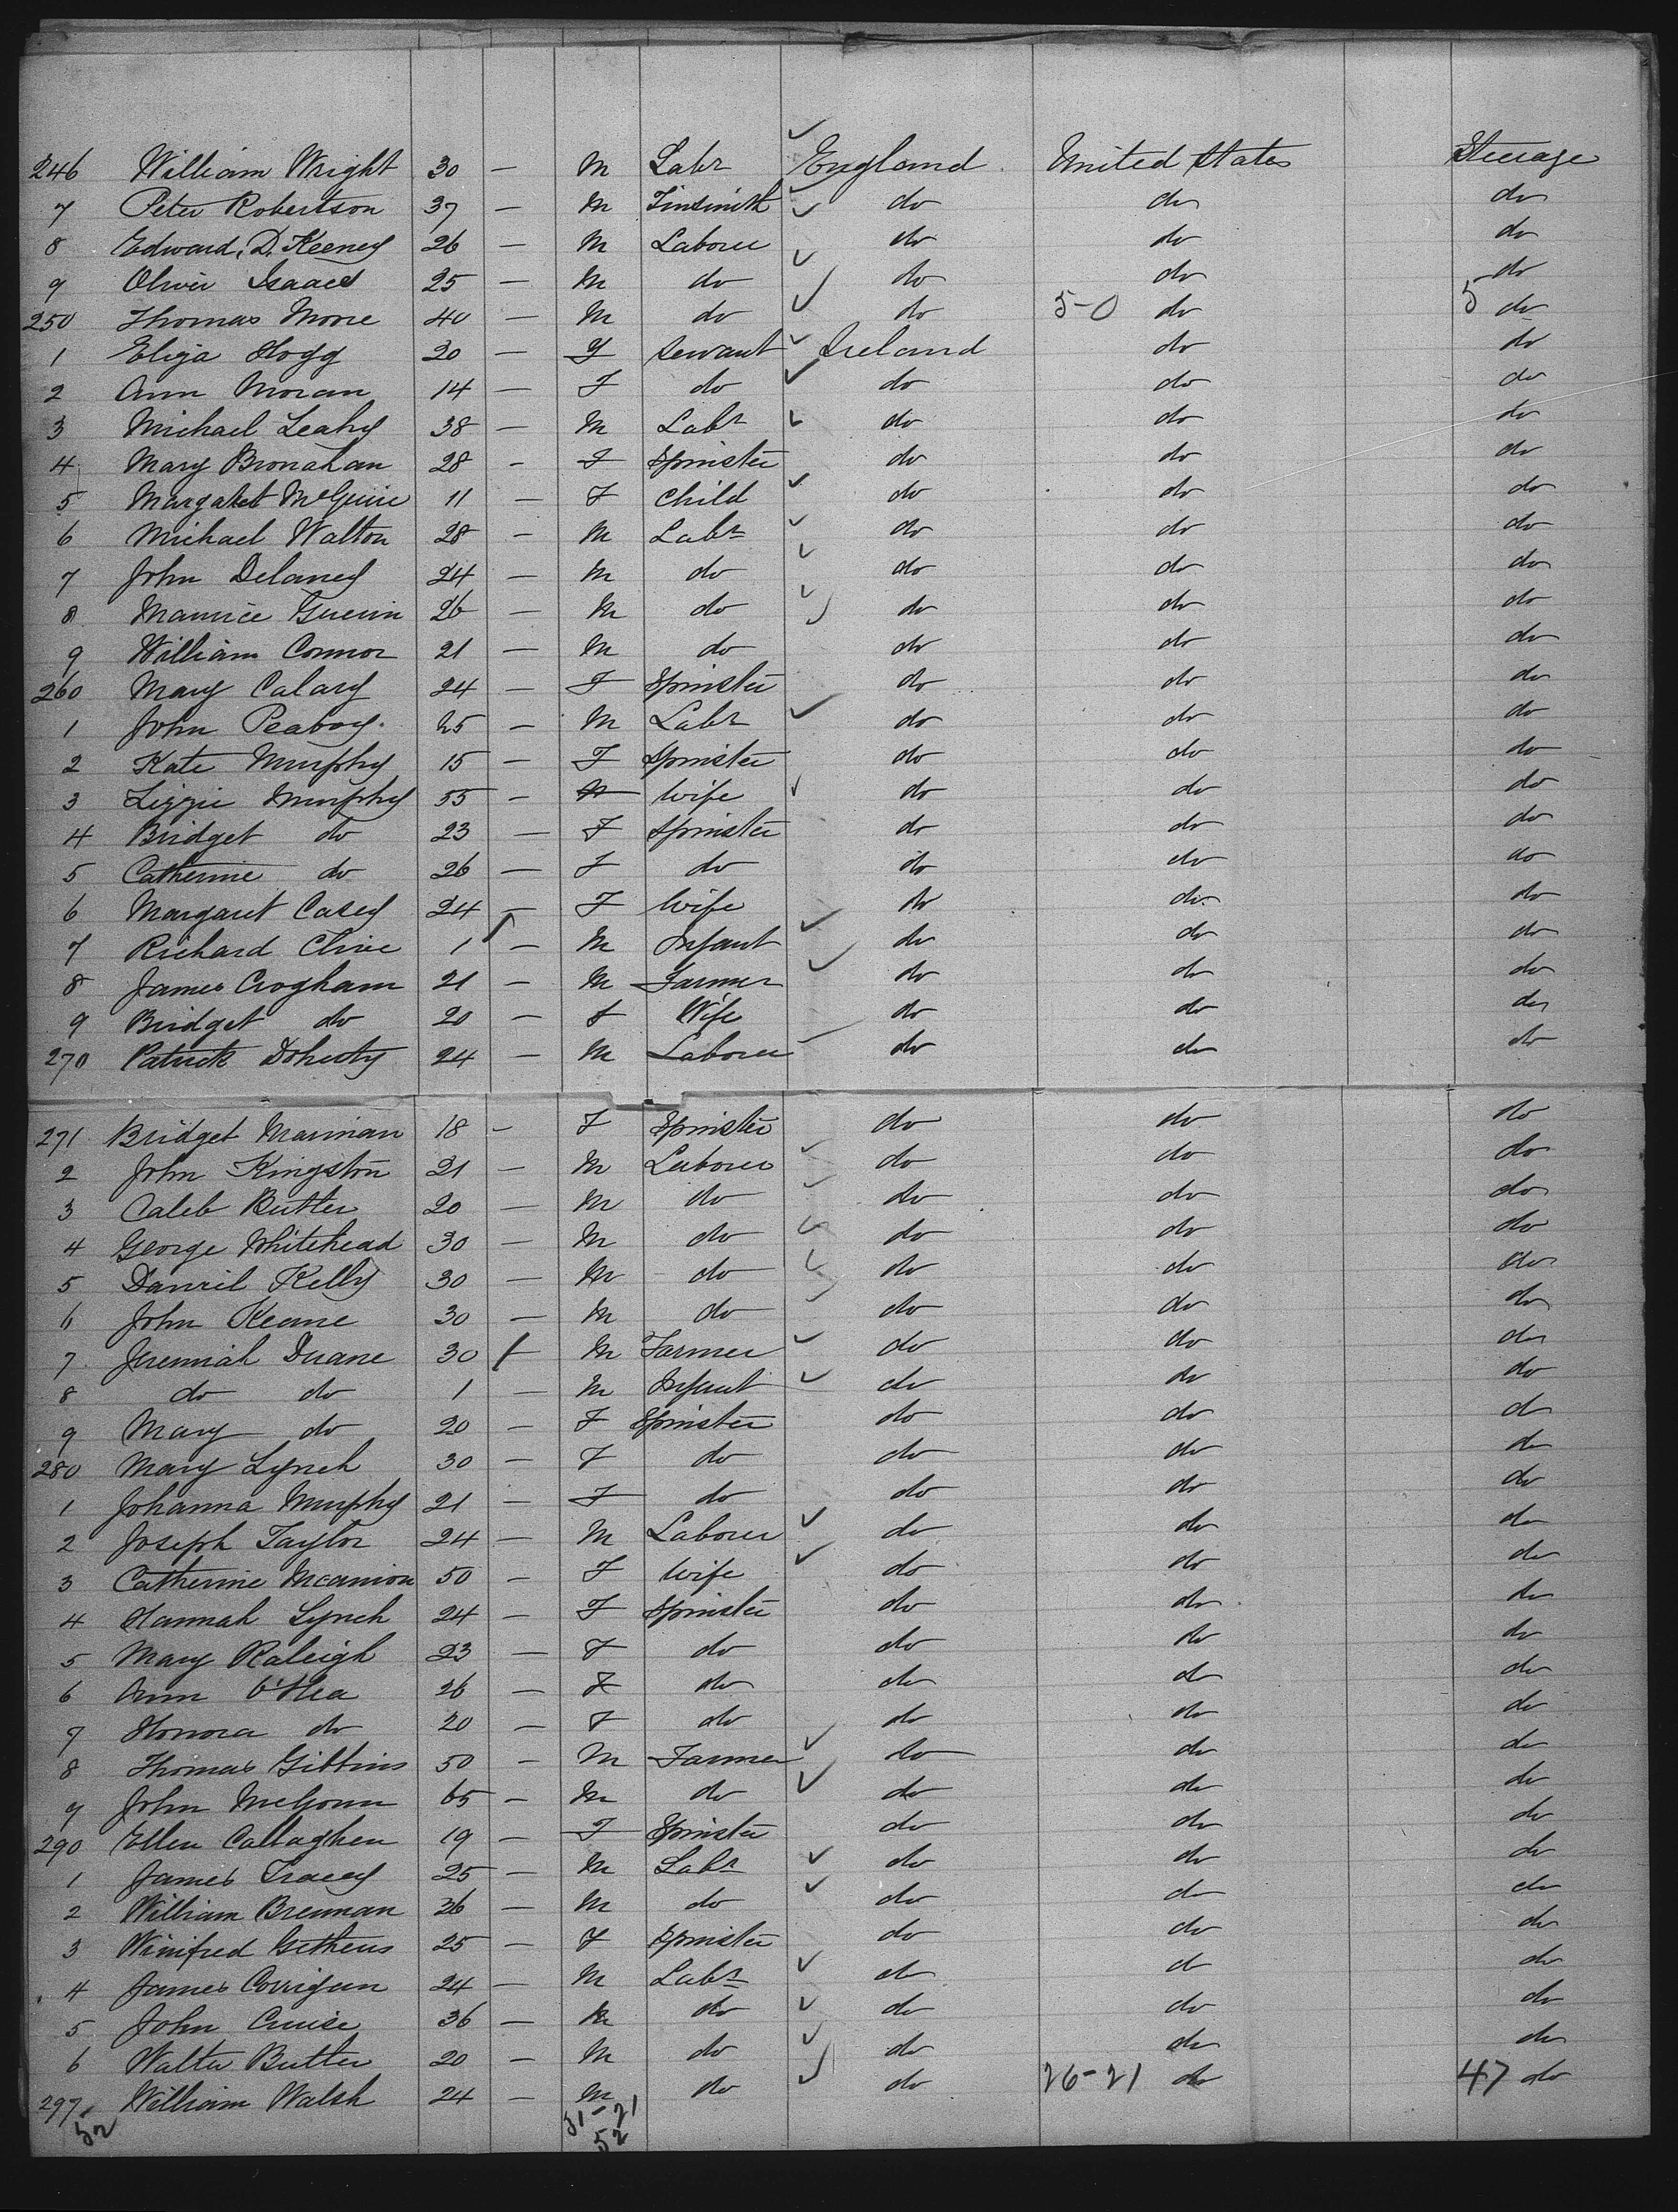 246 William Wright 30 — M Labr England United States Steerage
7 Peter Robertson 37 — M Tinsmith do do do
8 Edward. D. Keeney 26 — M Laborer do do do
9 Oliver Isaacs 25 — M do do do do
250 Thomas Moore 40 — M do do 5-0 do 5 do
1 Eliza Hogg 20 — F Servant Ireland do do
2 Ann Moran 14 — F do do do do
3 Michael Leahy 38 — M Labr do do do
4 Mary Bronahan 28 - F Spinster do do do
5 Margaret McGuire 11 — F Child do do do
6 Michael Walton 28 — M Labr do do do
7 John Delaney 24 — M do do do do
8 Maurice Guerin 26 — M do do do do
9 William Connor 21 — M do do do do
260 Mary Calary 24 — F Spinster do do do
1 John Peaboy 25 — M Labr do do do
2 Kate Murphy 15 — F Spinster do do do
3 Lizzie Murphy 55 — M Wife do do do
4 Bridget do 23 — F Spinster do do do
5 Catherine do 26 — F do do do do
6 Margaret Casey 24 — F Wife do do do
7 Richard Clive 1 — M Infant do do do
8 James Crogham 21 — M Farmer do do do
9 Bridget do 20 — F Wife do do do
270 Patrick Doherty 24 — M Laborer do do do
271 Bridget Marman 18 - F Spinster do do do
2 John Kingston 21 — M Laborer do do do
3 Caleb Butler 20 — M do do do do
4 George Whitehead 30 — M do do do do
5 Daniel Kelly 30 — M do do do do
6 John Keane 30 — M do do do do
7 Jeremiah Duane 30 — M Farmer do do do
8 do do 1 — M Infant do do do
9 Mary do 20 — F Spinster do do do
280 Mary Lynch 30 — F do do do do
1 Johanna Murphy 21 — F do do do do
2 Joseph Taylor 24 — M Laborer do do do
3 Catherine 50 — F Wife do do do
4 Hannah Lynch 24 — F Spinster do do do
5 Mary Raleigh 23 — F do do do do
6 Ann O'Hea 26 — F do do do do
7 Honora do 20 — F do do do do
8 Thomas Gibbins 50 — M Farmer do do do
9 John McGoun 65 — M do do do do
290 Ellen Callaghen 19 — F Spinster do do do
1 James Tracey 25 — M Labr do do do
2 William Brennan 36 — M do do do do
3 Winifred Gethens 25 — F Spinster do do do
4 James Corrigan 24 — M Labr do do do
5 John Cruise 36 — M do do do do
6 Walter Butler 20 — M do do do do
297 William Walsh 24 — M do do 26-21 do 47 do
52 31-21
52